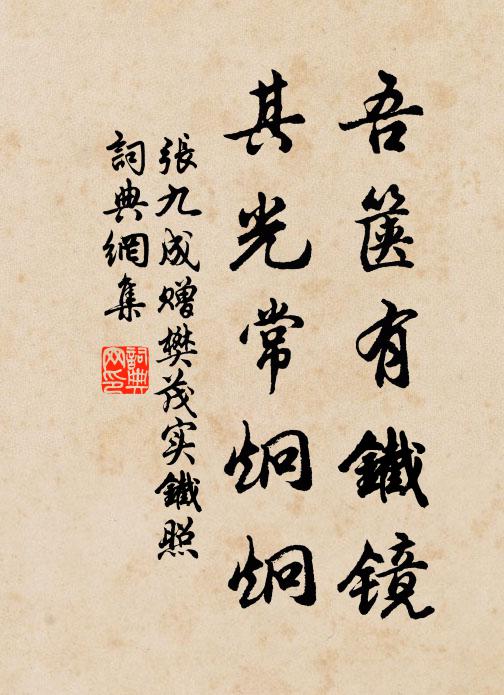 吾箧有鐵镜
其光常炯炯
張九成贈樊茂实鐵照
詞典網集
詞典网印